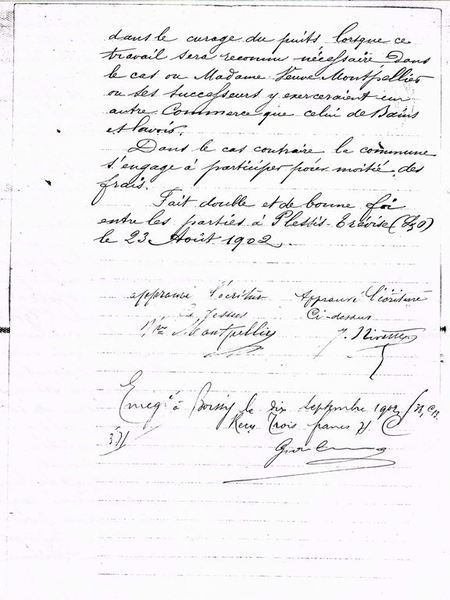 dans le curage du puits lorsque ce
travail sera reconnu nécessaire Dans
le cas ou Madame Veuve Montpellier
ou ses successeurs y exerceraient un
autre Commerce que celui de Bains
et lavoir.
Dans le cas contraire la commune
s'engage à participer pour moitié des
frais.
Fait double et de bonne foi
entre les parties à Plessis-Trévise (S&O)
le 23 Août 1902.
approuvé l'écriture
ci-dessus
Vve Montpellier
Approuvé l'écriture
Ci-dessus
Enreg. à Boissy le dix Septembre 1902
Reçu Trois francs